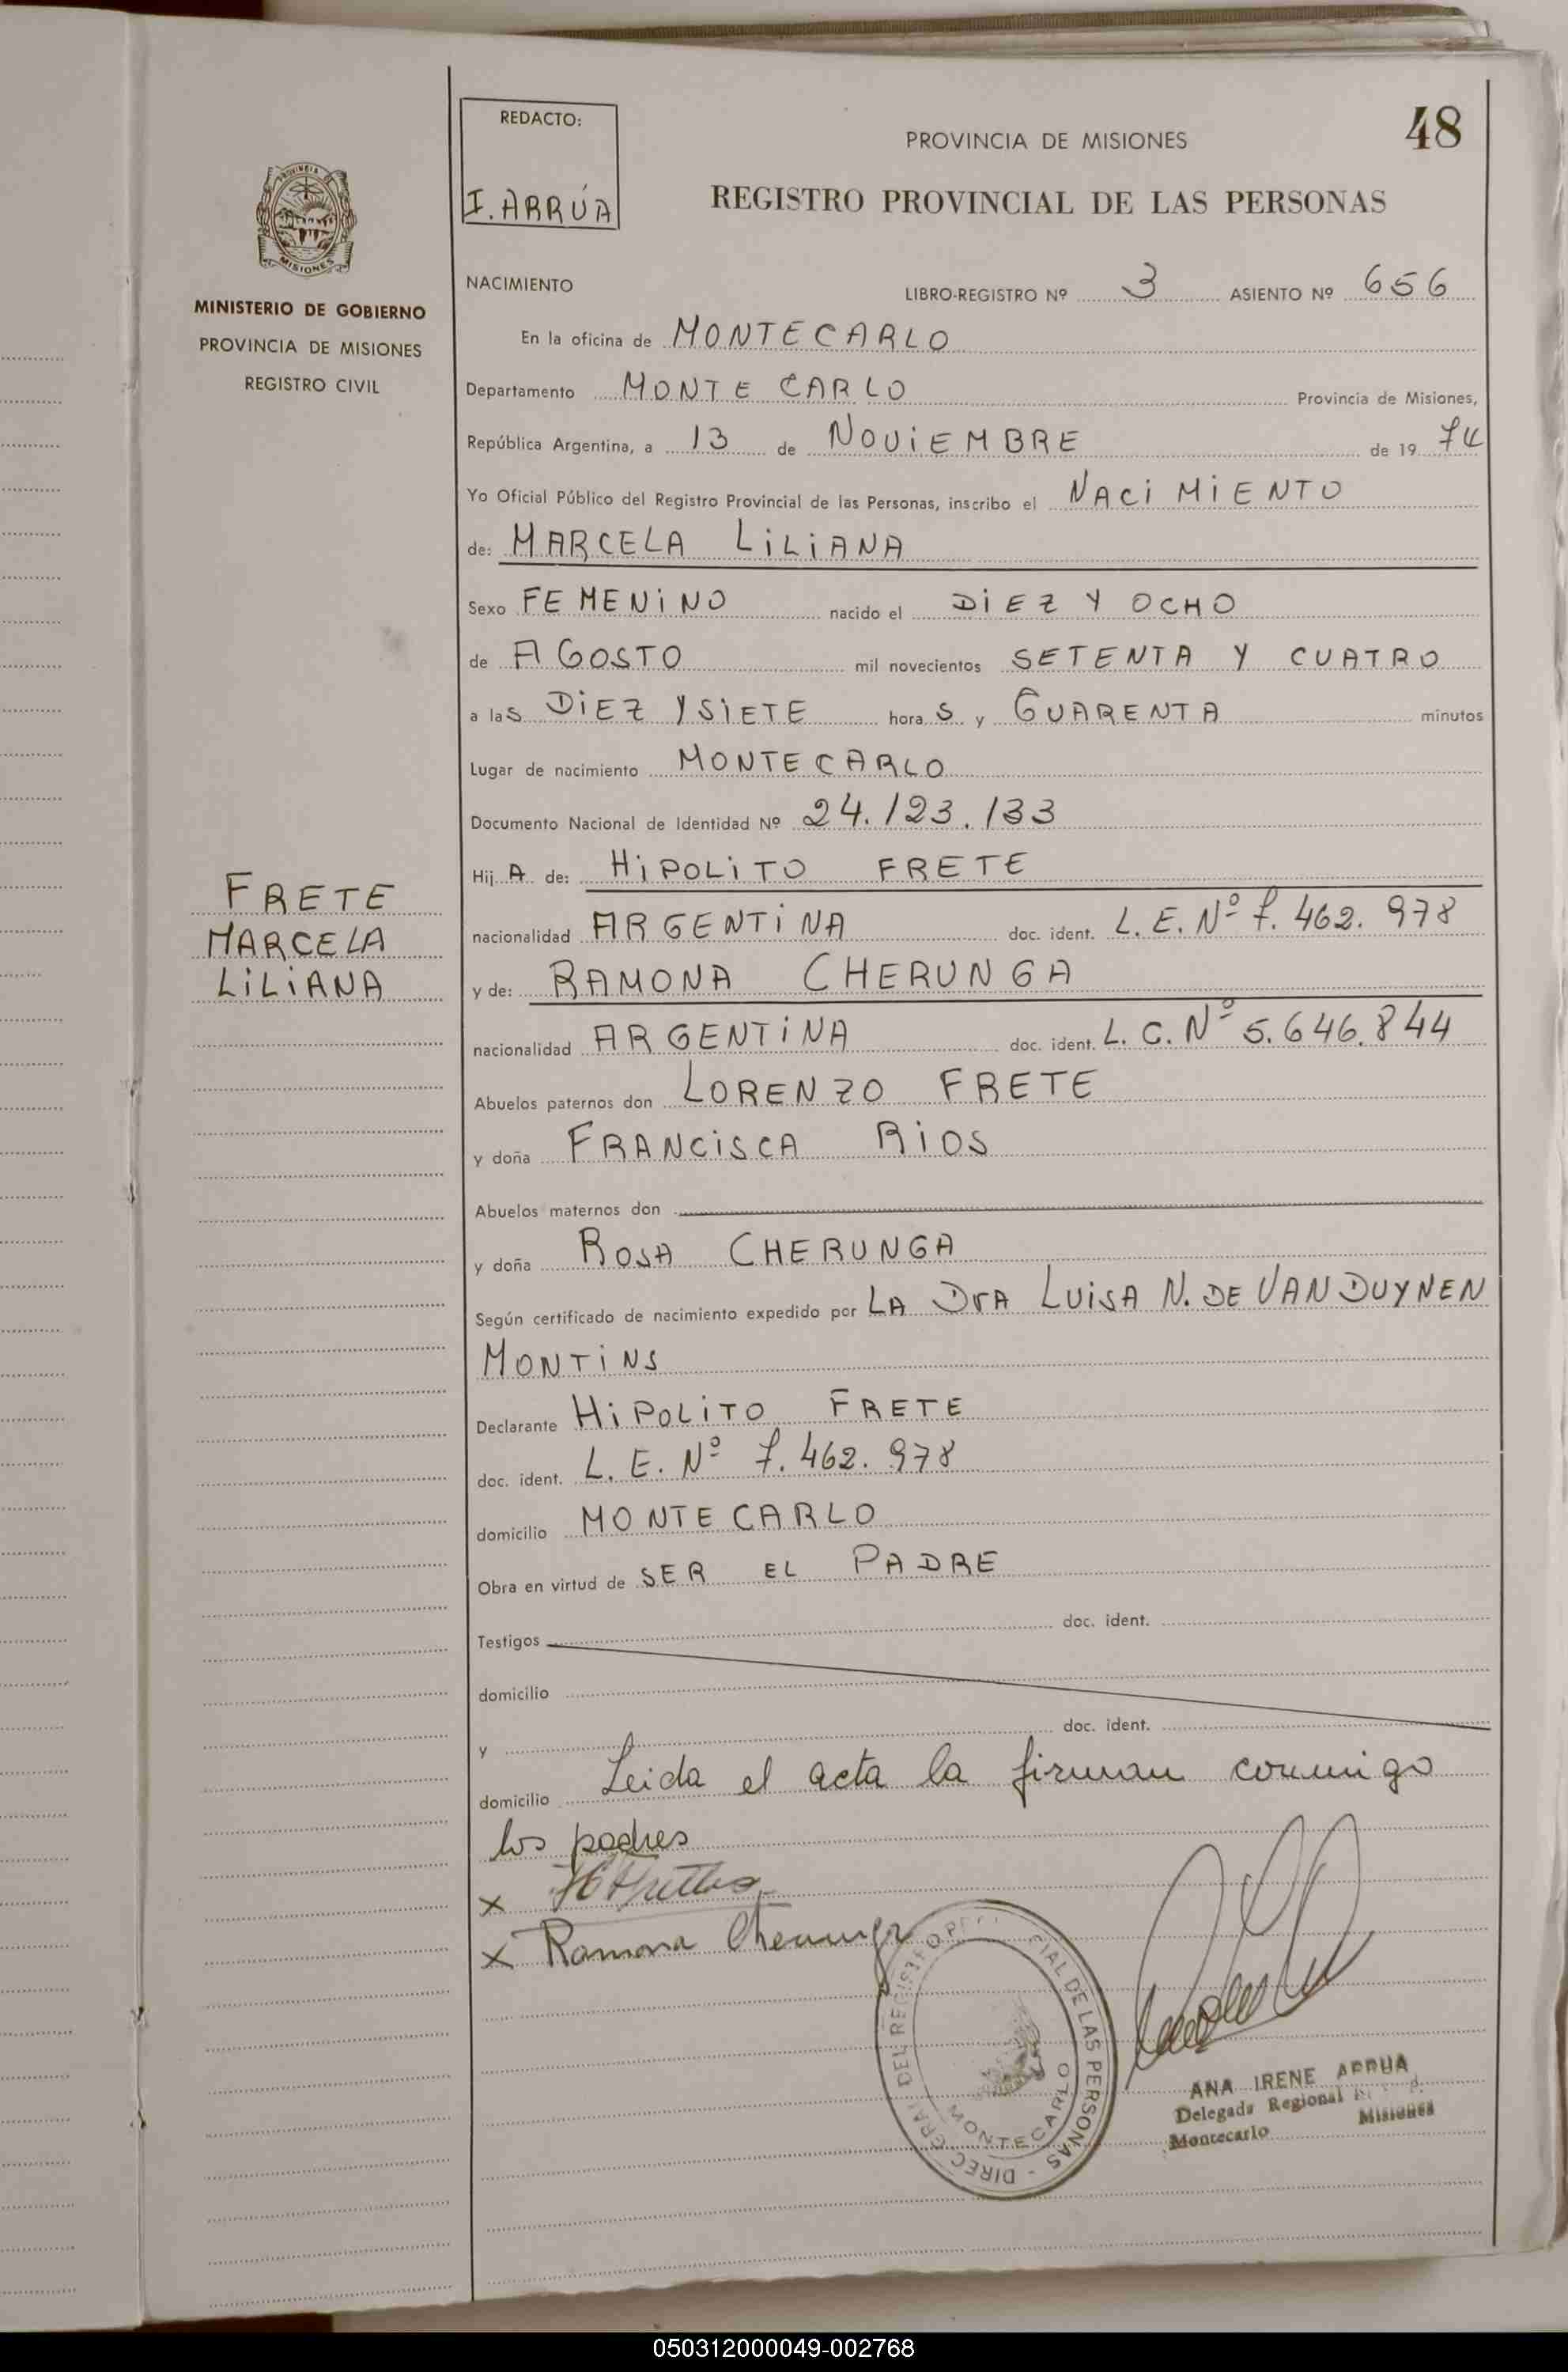 REDACTO:
I. ARRÚA
48
PROVINCIA DE MISIONES
REGISTRO PROVINCIAL DE LAS PERSONAS
PROVINCIA DE
MISIONES
MINISTERIO DE GOBIERNO
PROVINCIA DE MISIONES
REGISTRO CIVIL
NACIMIENTO
LIBRO-REGISTRO Nº 3 ASIENTO Nº 656
En la oficina de MONTECARLO
Departamento MONTE CARLO Provincia de Misiones,
República Argentina, a 13 de NOViEMBRE de 19 74
Yo Oficial Público del Registro Provincial de las Personas, inscribo el NACiMiENTO
de: MARCELA LiLiANA
Sexo FEMENiNO nacido el DiEZ Y OCHO
de AGOSTO mil novecientos SETENTA Y CUATRO
a las DiEZ YSiETE horas y CUARENTA minutos
Lugar de nacimiento MONTECARLO
Documento Nacional de Identidad Nº 24.123.133
Hij A de: HiPOLiTO FRETE
nacionalidad ARGENTiNA doc. ident. L.E. Nº 7.462.978
y de: RAMONA CHERUNGA
nacionalidad ARGENTiNA doc. ident. L.C. Nº 5.646.844
FRETE
MARCELA
LiLiANA
Abuelos paternos don LORENZO FRETE
y doña FRANCiSCA RiOS
Abuelos maternos don
y doña ROSA CHERUNGA
Según certificado de nacimiento expedido por LA DrA LUiSA N. DE VAN DUYNEN
MONTiNS
Declarante HiPOLiTO FRETE
doc. ident. L.E. Nº 7.462.978
domicilio MONTECARLO
Obra en virtud de SER EL PADRE
Testigos doc. ident.
domicilio
y doc. ident.
domicilio Leida el acta la firman conmigo
los padres
x
x Ramona Cherunga
DEL REGISTRO CIAL DE LAS PERSONAS - DIREC
MONTECARLO
ANA IRENE ARRUA
Delegada Regional
Montecarlo Misiones
050312000049-002768